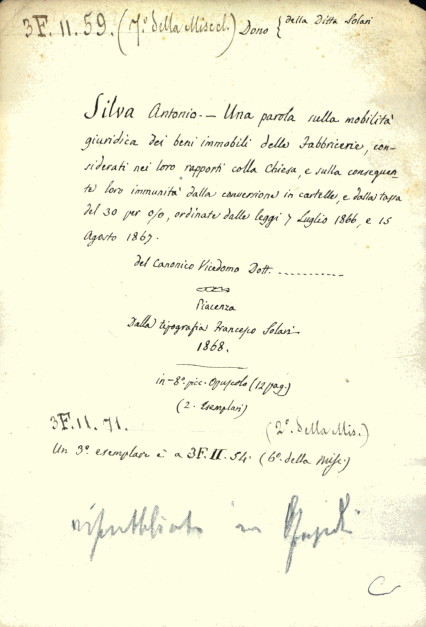 3F.II.59. (7º. della Miscel.) Dono { della Ditta Solari
Silva Antonio. — Una parola sulla mobilità
giuridica dei beni immobili delle Fabbricerie, con-
siderati nei loro rapporti colla Chiesa, e sulla conseguen-
te loro immunità dalla conversione in cartelle, e dalla tassa
del 30 per 0/0, ordinate dalle leggi 7 Luglio 1866, e 15
Agosto 1867.
del Canonico Vicedomo Dott. ............
Piacenza
Dalla tipografia Francesco Solari
1868.
in-8º. picc. Opuscolo (12 pag.)
(2. Esemplari)
3F.II.71. (2º. della Mis.)
Un 3º. esemplare è a 3F.II.54. (6º. della Misc.)
in
C